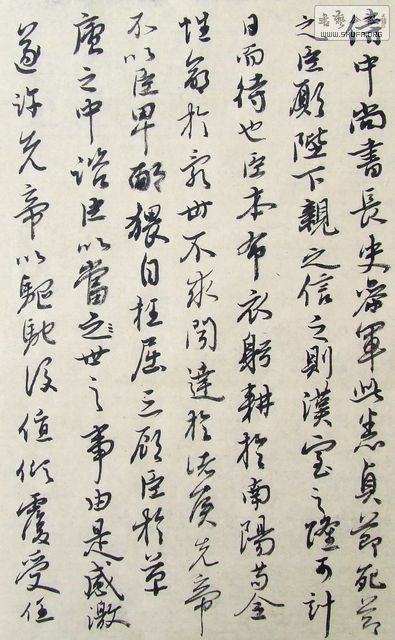 侍中尚書長史參軍此悉貞節死節
之臣願陛下親之信之則漢室之隆可計
日而待也臣本布衣躬耕於南陽苟全
性命於亂世不求聞達於諸侯先帝
不以臣卑鄙猥自枉屈三顧臣於草
廬之中諮臣以當之世之事由是感激
遂許先帝以驅馳後值傾覆受任
WWW.SHUFA.ORG